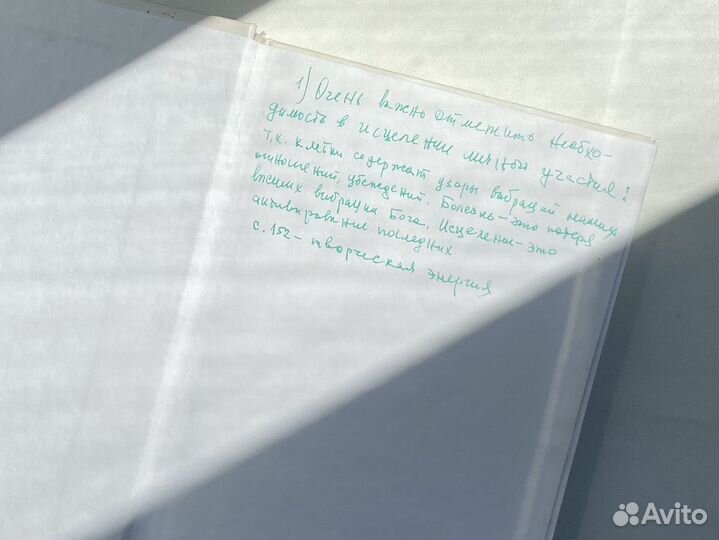 1) Очень важно отметить необхо-
димость в исцелении личного участия:
т.к. клетки содержат узоры вибраций наших
отношений, убеждений. Болезнь – это потеря
высших вибраций Бога. Исцеление – это
активирование последних
с. 152 – творческая энергия
Avito